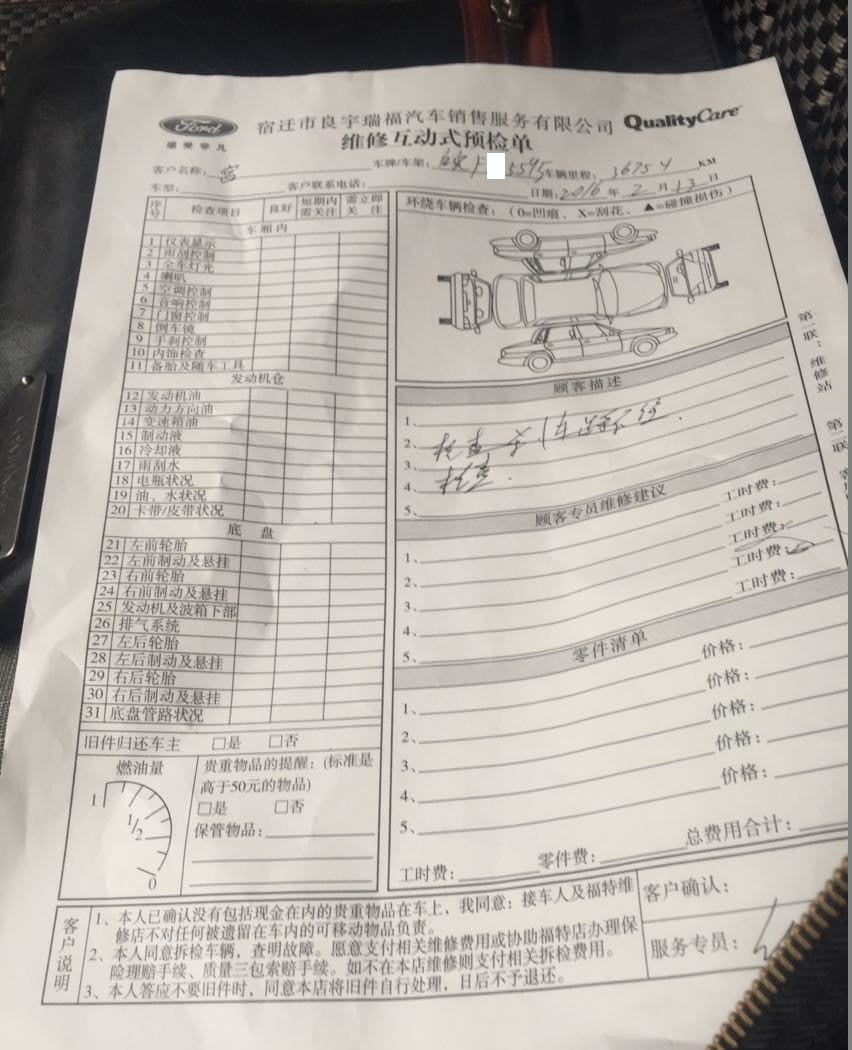 Ford
感受非凡
宿迁市良宇瑞福汽车销售服务有限公司
QualityCare
维修互动式预检单
客户名称： 宫
车牌/车架： 3595 车辆里程： 36754 KM
车型：
客户联系电话：
日期：2016 年 2 月 13 日
序号 检查项目 良好 短期内需关注 需立即关注
车厢内
1 仪表显示
2 雨刮控制
3 全车灯光
4 喇叭
5 空调控制
6 音响控制
7 门窗控制
8 倒车镜
9 手刹控制
10 内饰检查
11 备胎及随车工具
发动机仓
12 发动机油
13 动力方向油
14 变速箱油
15 制动液
16 冷却液
17 雨刮水
18 电瓶状况
19 油、水状况
20 卡带/皮带状况
底盘
21 左前轮胎
22 左前制动及悬挂
23 右前轮胎
24 右前制动及悬挂
25 发动机及波箱下部
26 排气系统
27 左后轮胎
28 左后制动及悬挂
29 右后轮胎
30 右后制动及悬挂
31 底盘管路状况
旧件归还车主 □是 □否
燃油量
1
1/2
0
贵重物品的提醒：(标准是
高于50元的物品)
□是 □否
保管物品：
环绕车辆检查：（0=凹痕、X=刮花、▲=碰撞损伤）
顾客描述
1、
2、检查
3、
4、检查.
5、
顾客专员维修建议
1、 工时费：
2、 工时费：
3、 工时费：
4、 工时费：
5、 工时费：
零件清单
1、 价格：
2、 价格：
3、 价格：
4、 价格：
5、 价格：
工时费： 零件费： 总费用合计：
第一联：维修站
第二联
客户说明
1、本人已确认没有包括现金在内的贵重物品在车上，我同意：接车人及福特维
修店不对任何被遗留在车内的可移动物品负责。
2、本人同意拆检车辆，查明故障。愿意支付相关维修费用或协助福特店办理保
险理赔手续、质量三包索赔手续。如不在本店维修则支付相关拆检费用。
3、本人答应不要旧件时，同意本店将旧件自行处理，日后不予退还。
客户确认：
服务专员：